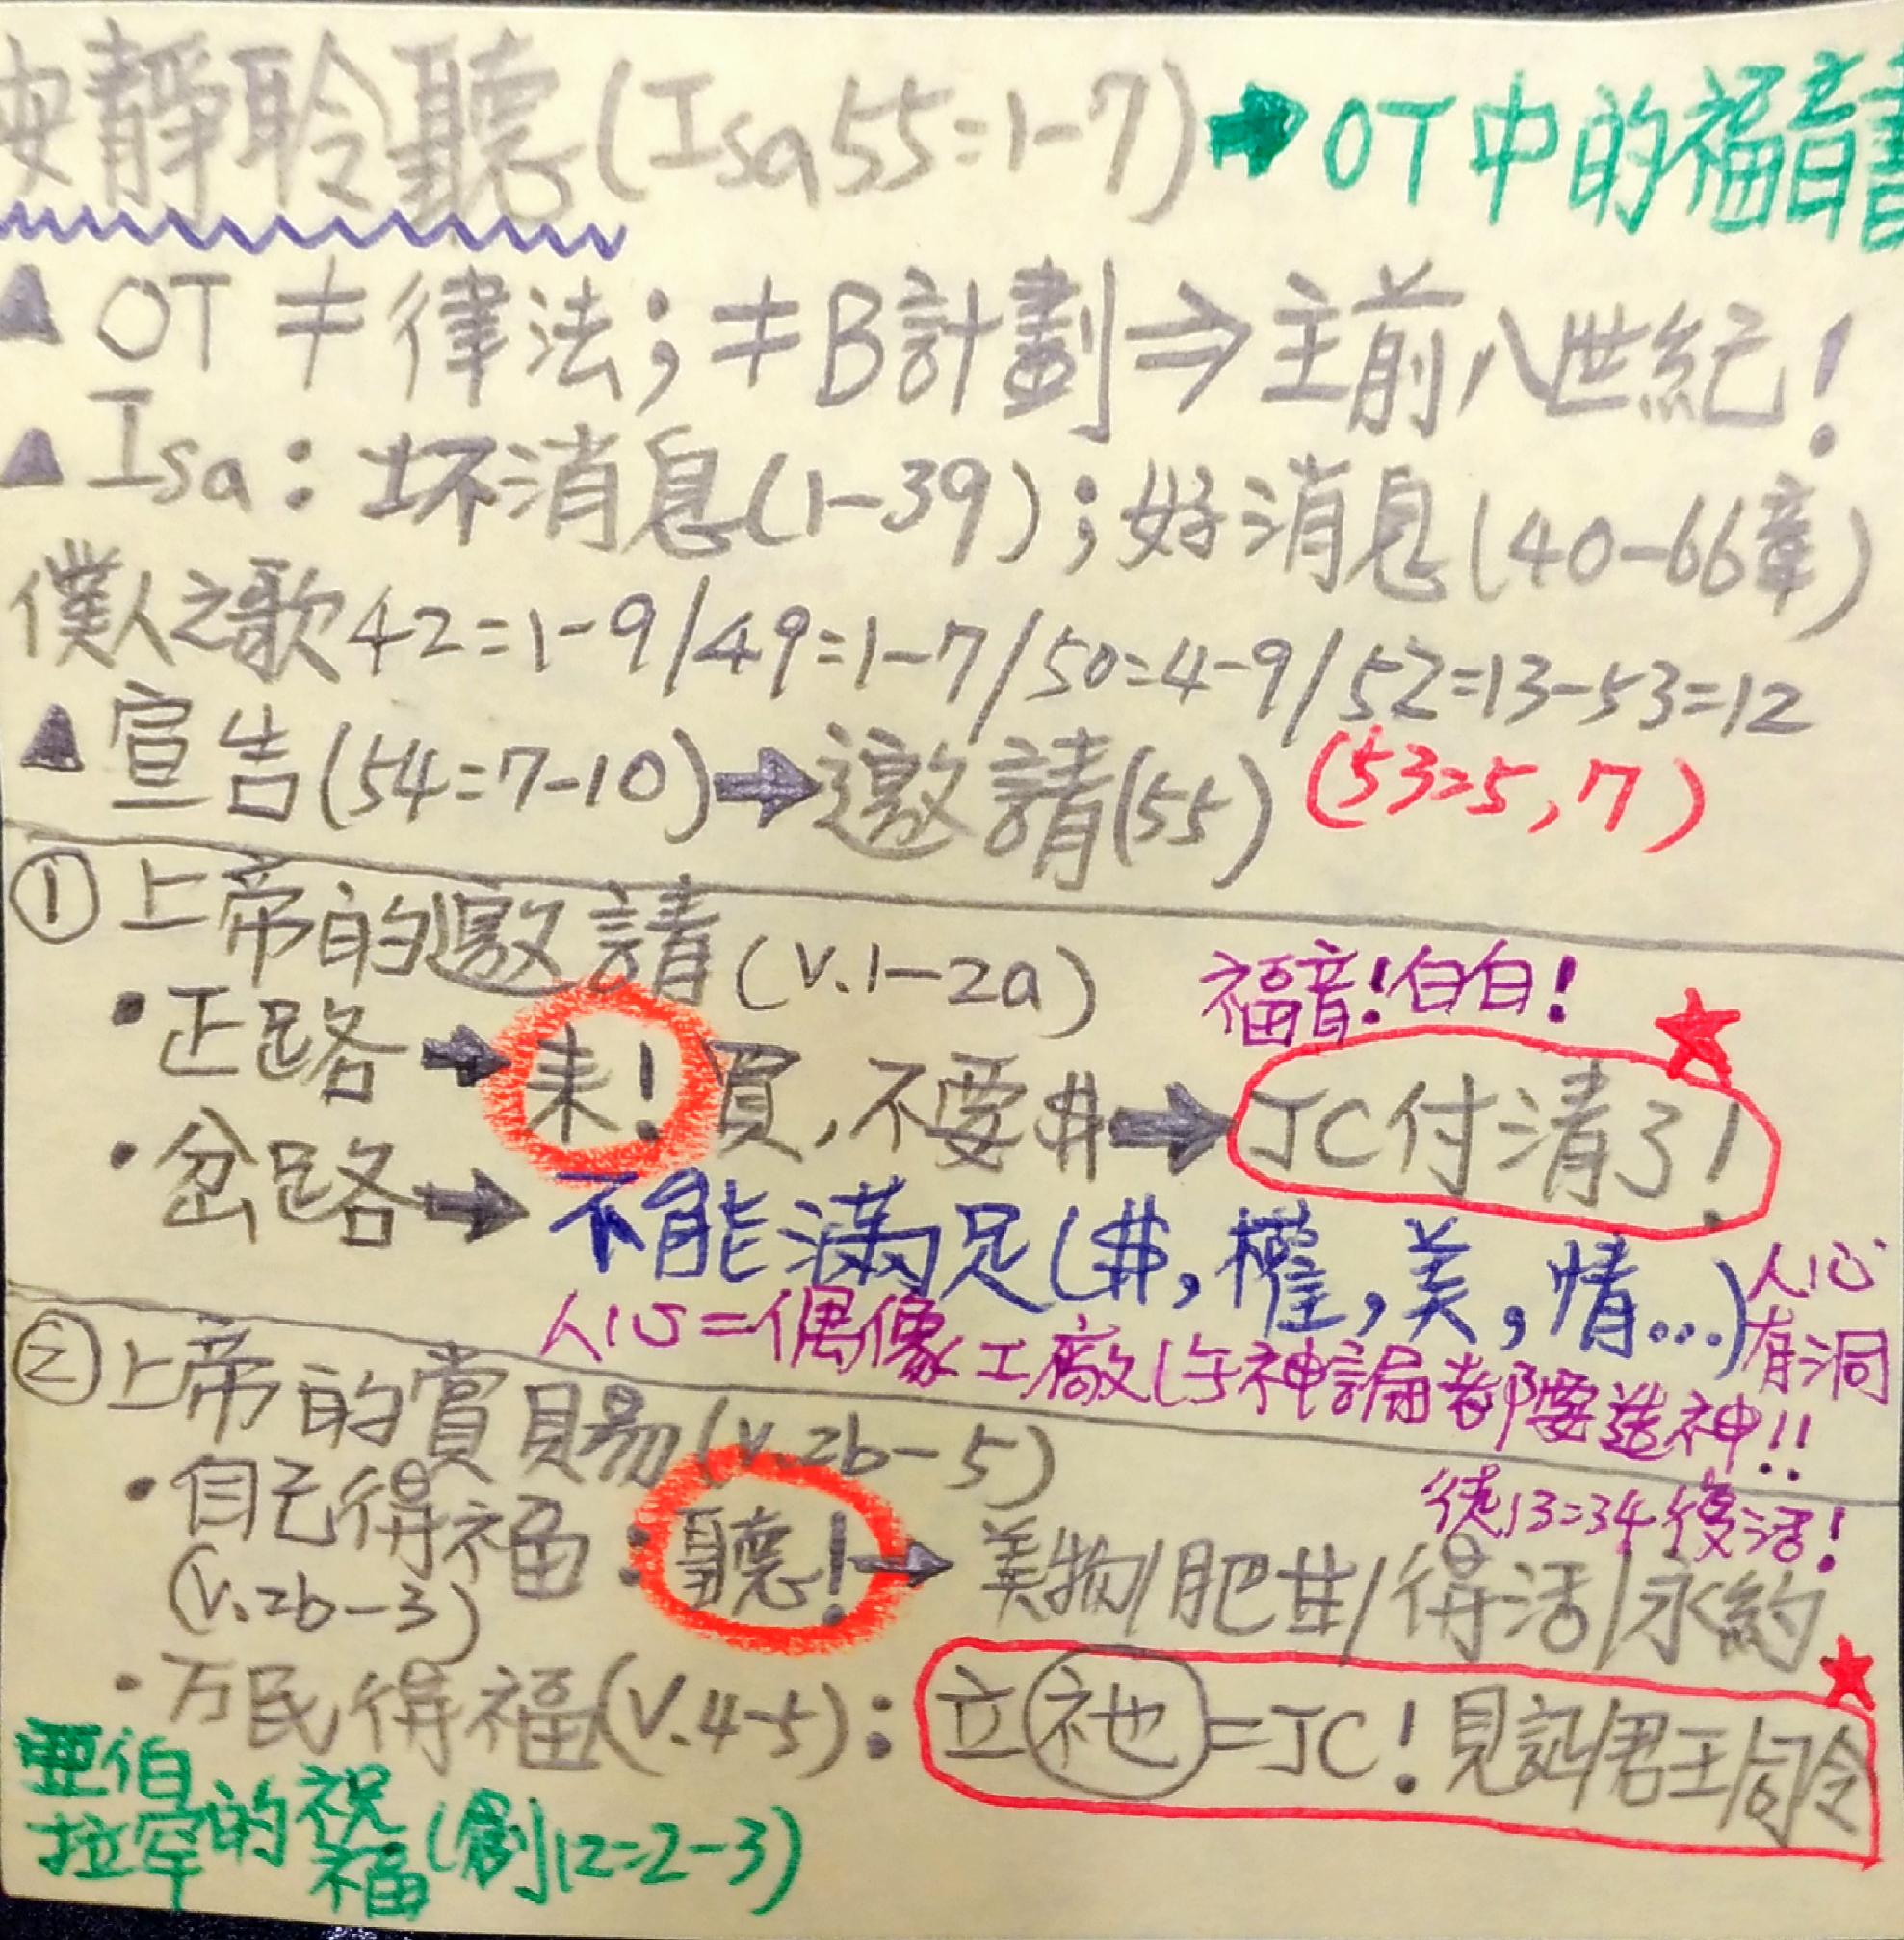 安靜聆聽(Isa55:1-7)➡OT中的福音書
▲OT≠律法;≠B計劃⇒主前八世紀!
▲Isa:坏消息(1-39);好消息(40-66章)
僕人之歌42:1-9/49:1-7/50:4-9/52:13-53:12
▲宣告(54:7-10)➡邀請(55)(53:5,7)
①上帝的邀請(v.1-2a)
福音!白白!
•正路➡來!買,不要$➡JC付清了!
•岔路➡不能滿足($,權,美,情...)人心有洞
人心=偶像工廠(乍神論者都要造神!!
②上帝的賞賜(v.2b-5)
徒13:34復活!
•自己得福:聽!➡美物/肥甘/得活/永約
(v.2b-3)
•万民得福(v.4-5):立祂=JC!見証/君王/司令
亞伯拉罕的祝福(創12:2-3)